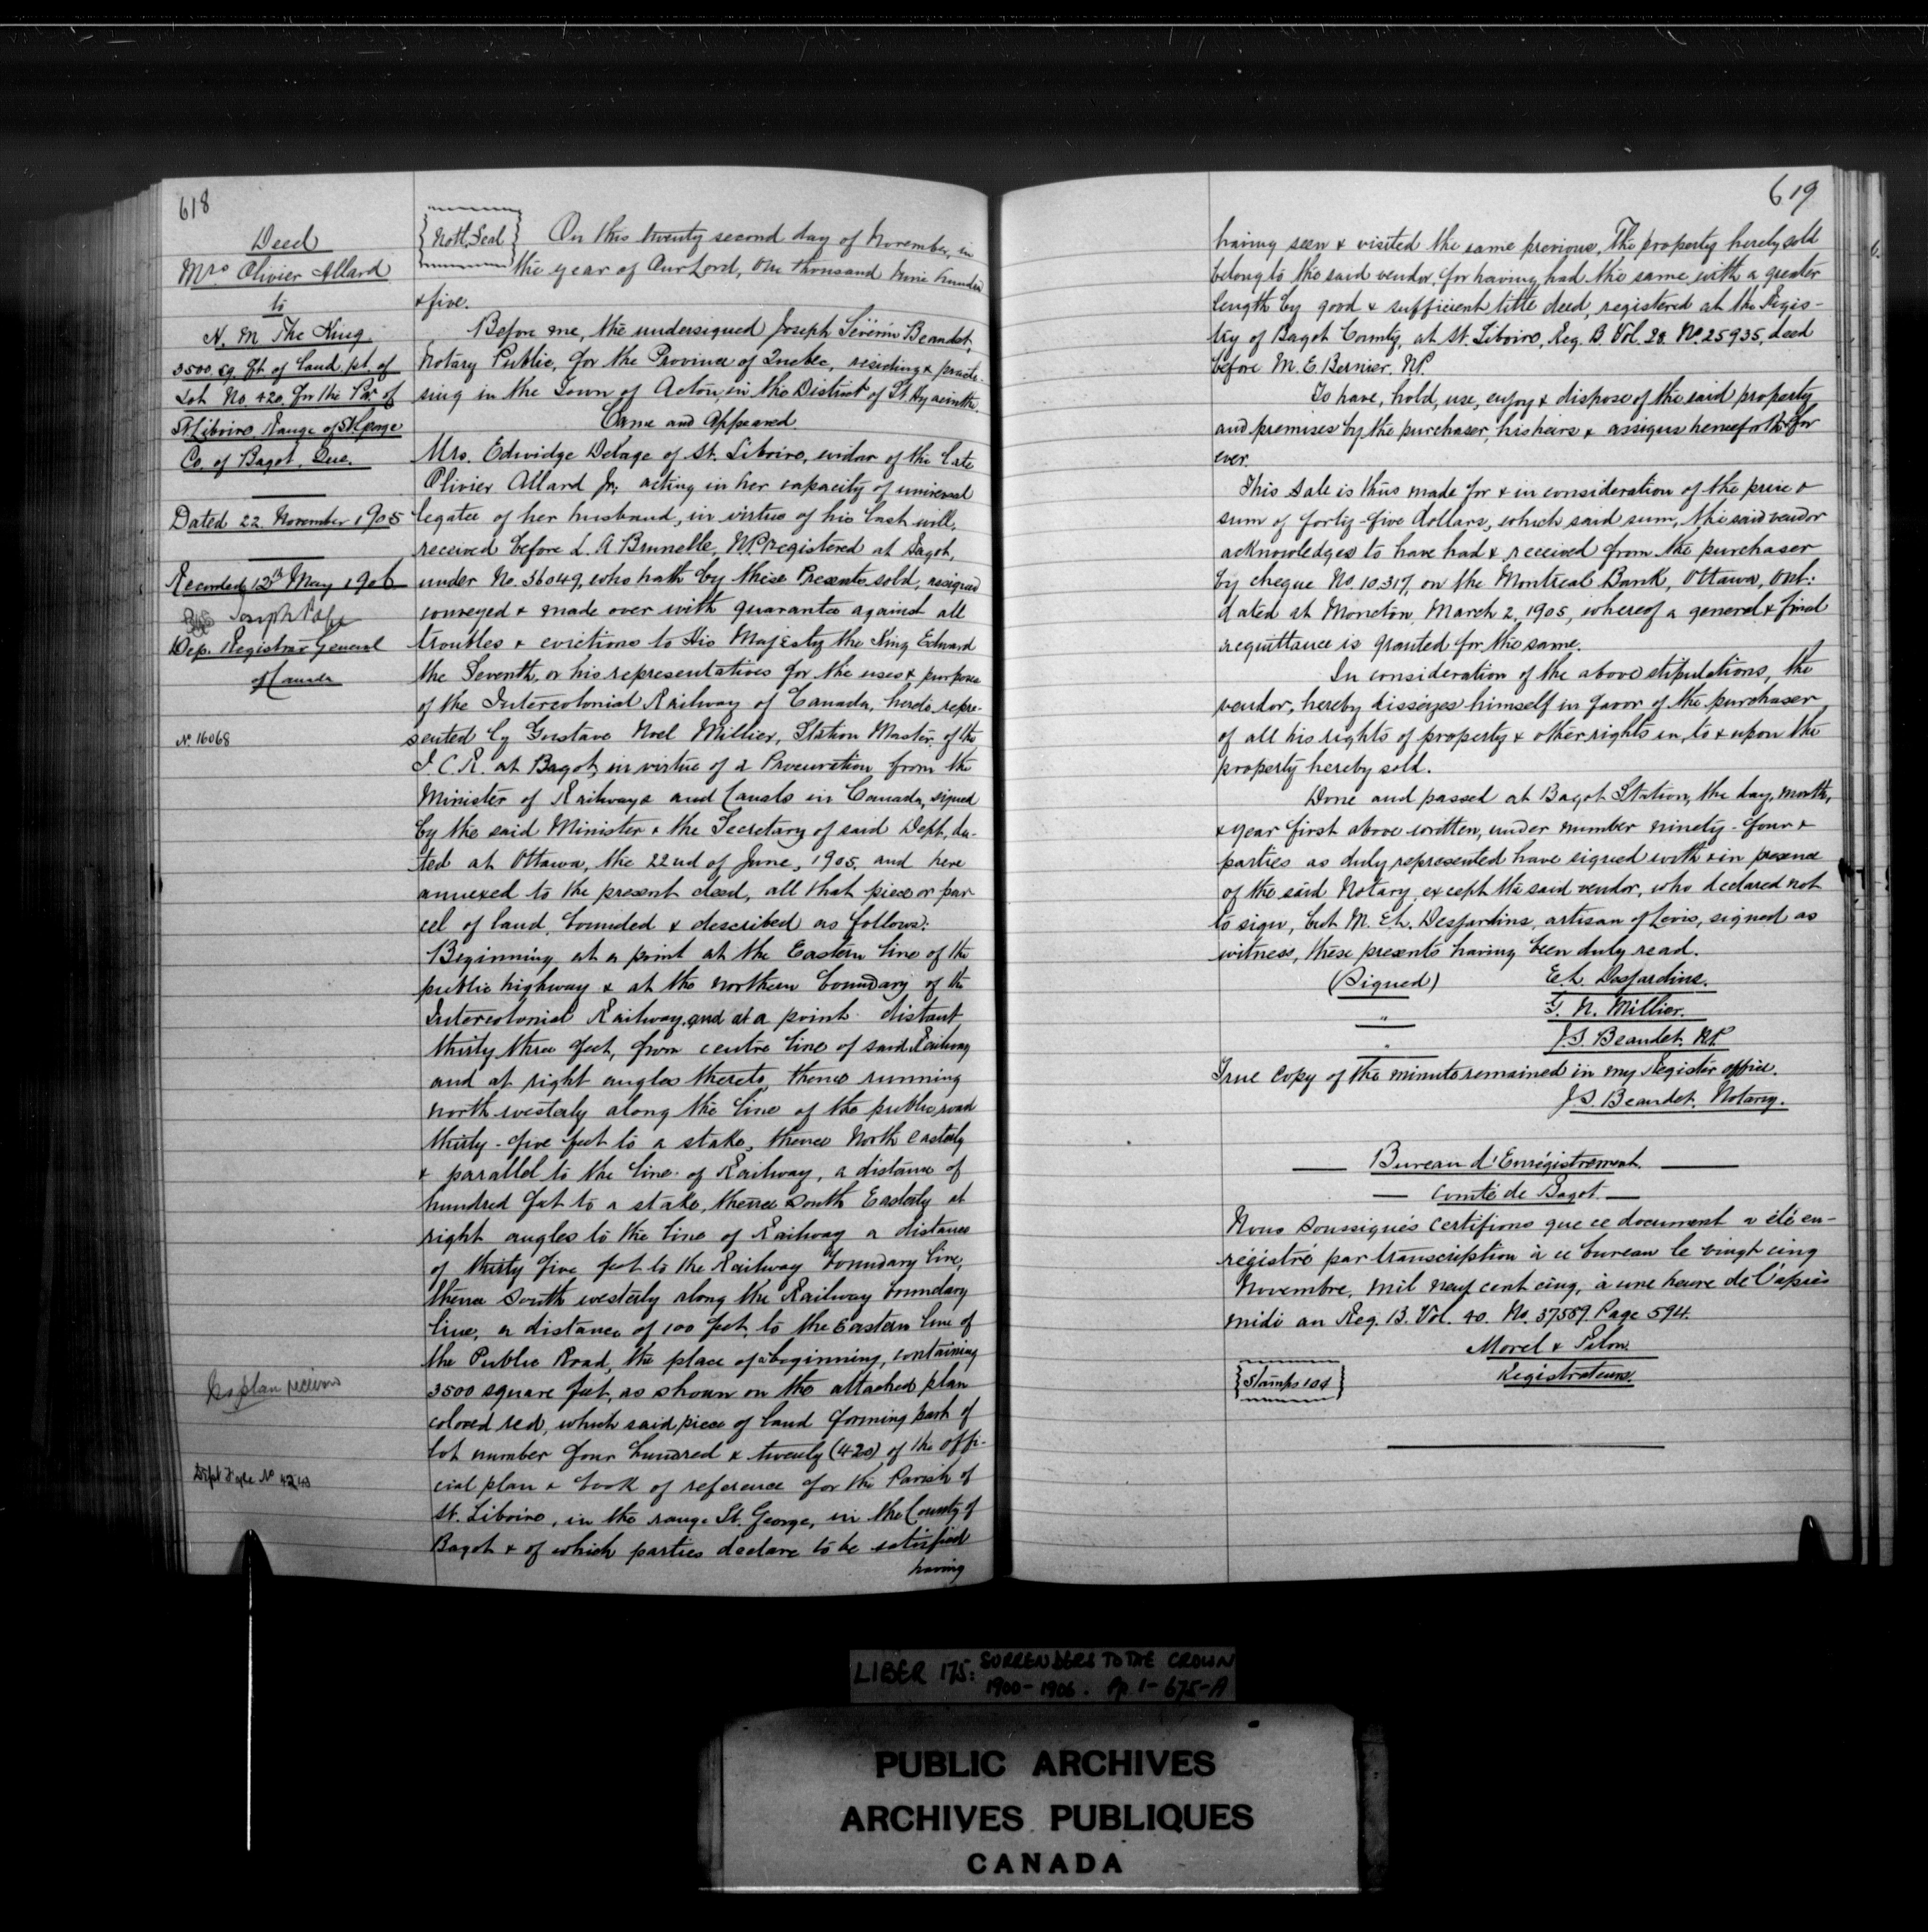 618
Deed
Mrs Olivier Allard
to
H. M. The King
3500 sq. ft. of land pt. of
Lot No. 420. for the Par. of
St Liboire, Range of St George
Co. of Bagot, Que.
Dated 22 November 1905
Recorded 12th May 1906
Joseph Pope
Dep. Registrar General
of Canada
No 16068
No plan received
Dept No 4243
{ Notl. Seal } On this twenty second day of November, in
the year of Our Lord, One thousand nine hundred
& five.
Before me, the undersigned Joseph Sévérin Beaudet,
Notary Public, for the Province of Quebec, residing & practi-
sing in the Town of Acton, in the District of St Hyacinthe.
Came and Appeared
Mrs. Edwidge Delage of St. Liboire, widow of the late
Olivier Allard Jr., acting in her capacity of universal
legatee of her husband, in virtue of his last will,
received before L. A Brunelle, N.P. registered at Bagot,
under No. 36049, who hath by these Presents sold, assigned
conveyed & made over with guarantee against all
troubles & evictions to His Majesty the King Edward
the Seventh, or his representatives for the uses & purposes
of the Intercolonial Railway of Canada, hereto repre-
sented by Gustave Noel Millier, Station Master of the
I. C. R. at Bagot, in virtue of a Procuration from the
Minister of Railways and Canals in Canada, signed
by the said Minister & the Secretary of said Dept. da-
ted at Ottawa, the 22nd of June, 1905, and here
annexed to the present deed, all that piece or par
cel of land, bounded & described as follows:
Beginning at a point at the Eastern line of the
public highway & at the northern boundary of the
Intercolonial Railway, and at a point distant
thirty three feet, from centre line of said Railway
and at right angles thereto, thence running
north westerly along the line of the public road
thirty-five feet to a stake, thence North Easterly
& parallel to the line of Railway, a distance of
hundred feet to a stake, thence South Easterly at
right angles to the line of Railway a distance
of thirty five feet to the Railway boundary line,
thence South westerly along the Railway boundary
line, a distance of 100 feet, to the Eastern line of
the Public Road, the place of beginning, containing
3500 square feet, as shown on the attached plan
colored red, which said piece of land forming part of
lot number four hundred & twenty (420) of the offi-
cial plan & book of reference for the Parish of
St. Liboire, in the range St. George, in the County of
Bagot & of which parties declare to be satisfied
having
619
having seen & visited the same previous. The property hereby sold
belong to the said vendor, for having had the same with a greater
length by good & sufficient title deed, registered at the Regis-
try of Bagot County, at St. Liboire, Reg. B. Vol. 28. No. 25935, deed
before M. E. Bernier. N.P.
To have, hold, use, enjoy & dispose of the said property
and premises by the purchaser, his heirs & assigns henceforth for
ever.
This sale is thus made for & in consideration of the price &
sum of forty-five dollars, which said sum, the said vendor
acknowledges to have had & received from the purchaser
by cheque No. 10.317, on the Montreal Bank, Ottawa, Ont.
dated at Moncton, March 2, 1905, whereof a general & final
acquittance is granted for the same.
In consideration of the above stipulations, the
vendor, hereby disseizes himself in favor of the purchaser
of all his rights of property & other rights in, to & upon the
property hereby sold.
Done and passed at Bagot Station, the day, month,
& year first above written, under number ninety-four &
parties as duly represented have signed with & in presence
of the said Notary, except the said vendor, who declared not
to sign, but M. Et. Desjardins, artisan of Levis, signed as
witness, these presents having been duly read.
(Signed) Et. Desjardins.
" G. N. Millier.
" J. S. Beaudet. N.P.
True Copy of the minute remained in my Register office.
J. S. Beaudet. Notary.
Bureau d'Enrégistrement.
Comté de Bagot.
Nous soussignés certifions que ce document a été en-
régistré par transcription à ce bureau le vingt cinq
Novembre, mil neuf cent cinq, à une heure de l'après
midi au Reg. B. Vol. 40. No. 37589. Page 594.
Morel & Pilon
Registrateurs.
{ Stamps 10¢ }
LIBER 175: SURRENDERS TO THE CROWN
1900-1906. Pp. 1-675-A
PUBLIC ARCHIVES
ARCHIVES PUBLIQUES
CANADA